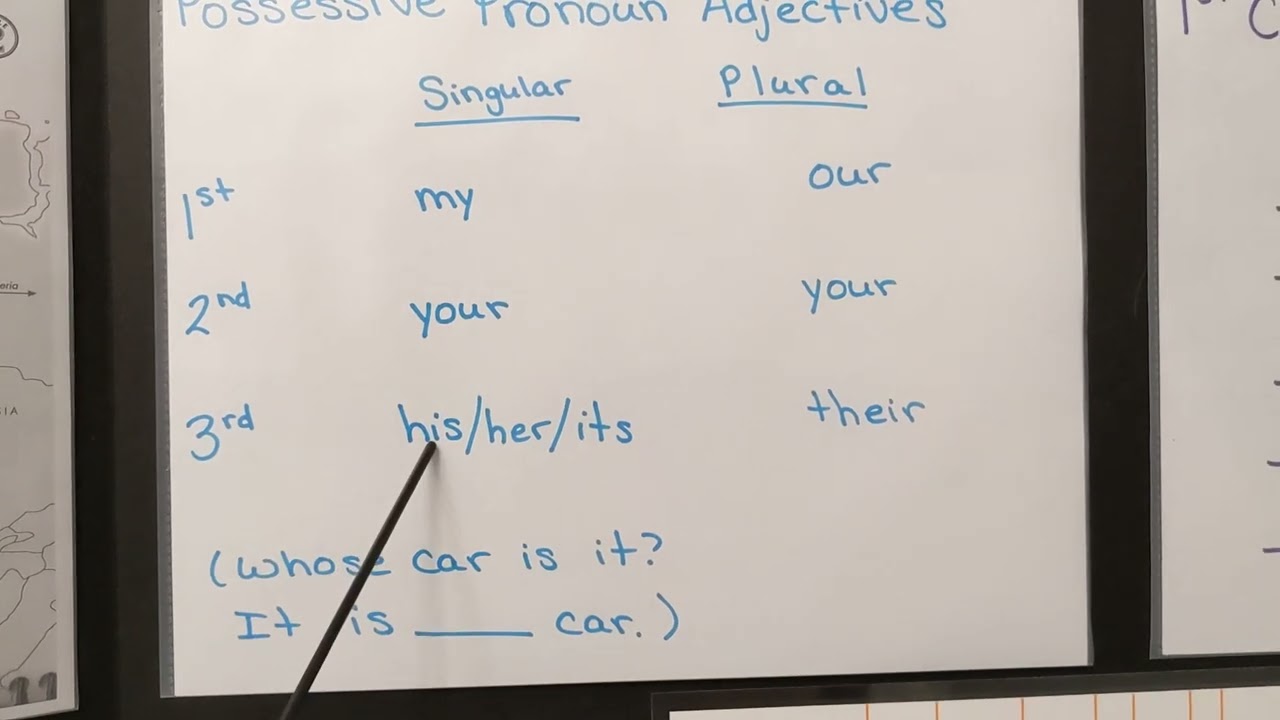 Possessive Pronoun Adjectives
Singular Plural
1st my our
2nd your your
3rd his/her/its their
(Whose car is it?
It is ____ car.)